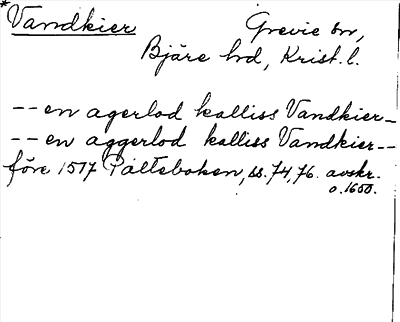 *Vandkier Grevie sn,
Bjäre hd, Krist. l.
-- en agerlod kalliss Vandkier --
-- en aggerlod kalliss Vandkier --
före 1517 Palteboken, ss. 74, 76. avskr.
o. 1650.